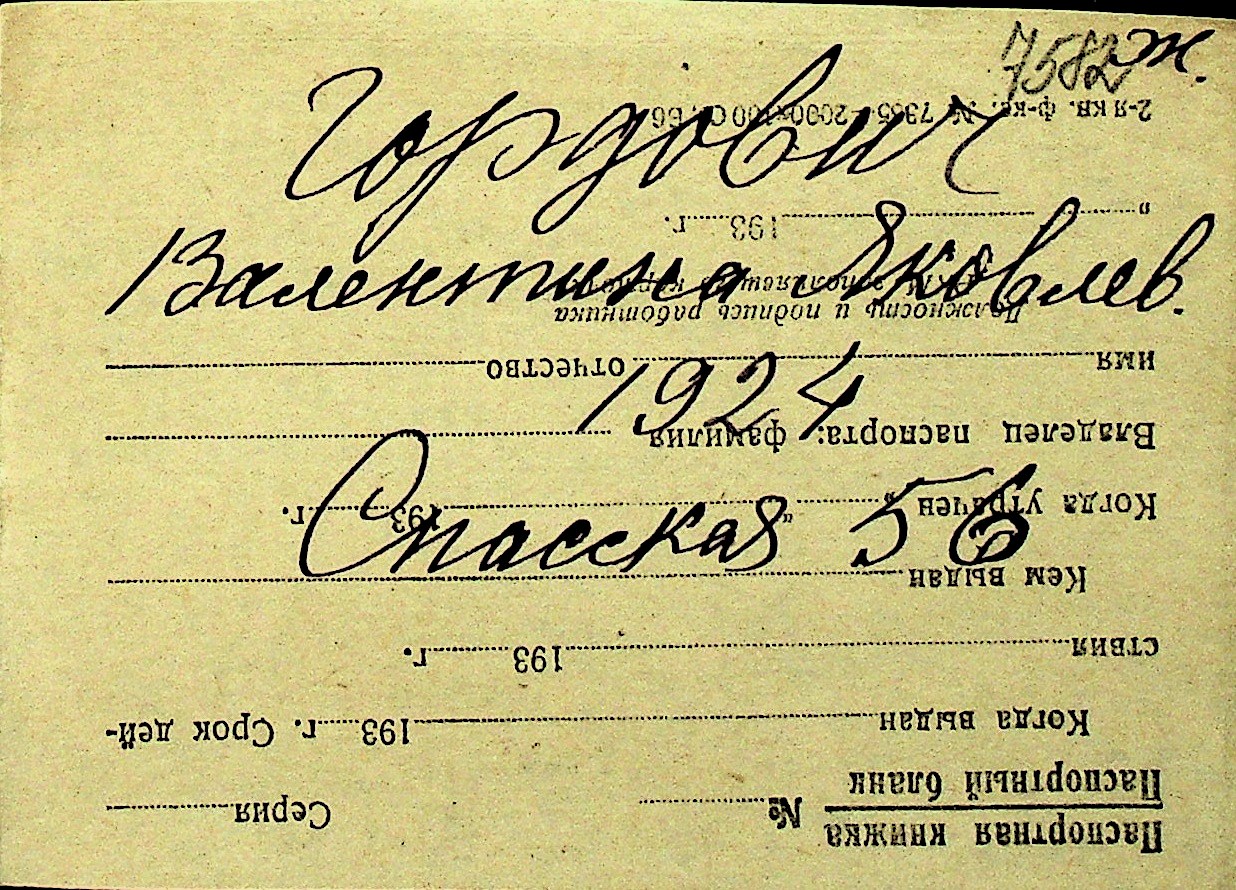 7582 ж.
Гордович
Валентина Яковлев.
1924
Спасская 56
Паспортная книжка
Паспортный бланк
№ Серия
Когда выдан 193 г. Срок дей-
ствия 193 г.
Кем выдан
Когда утрачен „ “ 193 г.
Владелец паспорта: фамилия
имя отчество
Должность и подпись работника
„ “ 193 г.
2-я кв. ф-ка.